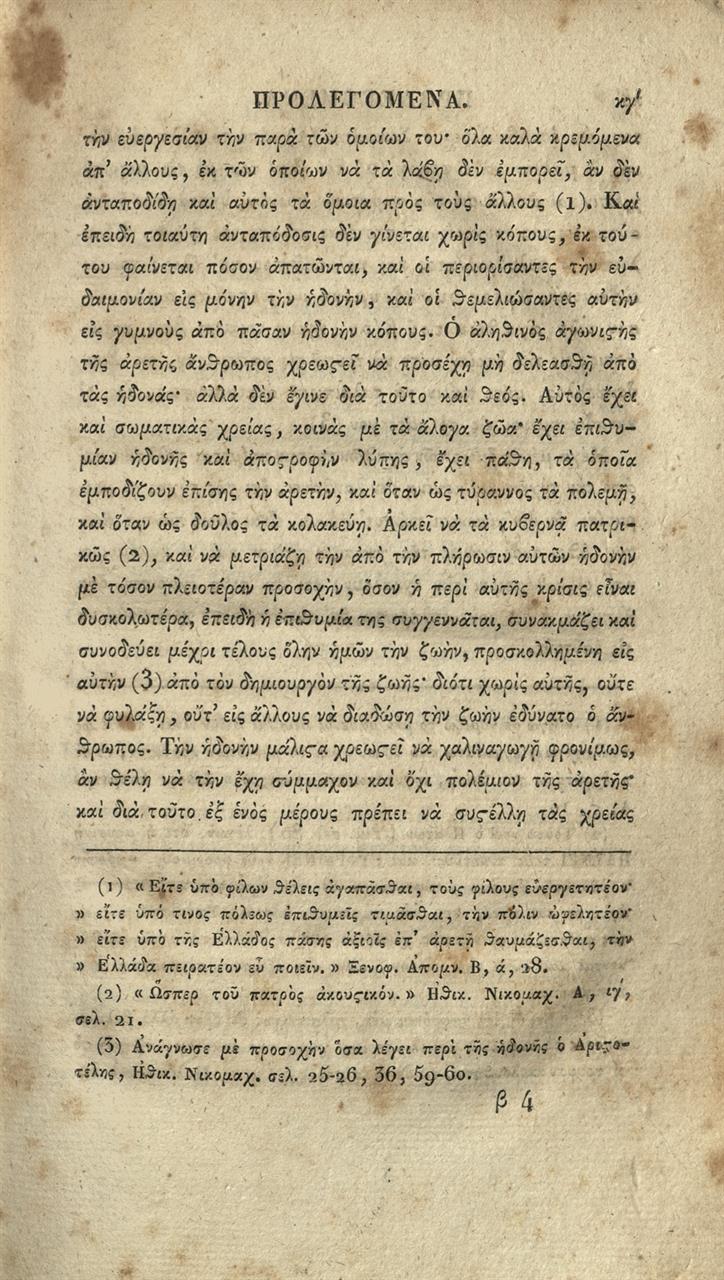 ΠΡΟΛΕΓΟΜΕΝΑ. κγʹ
τὴν εὐεργεσίαν τὴν παρὰ τῶν ὁμοίων του· ὅλα καλὰ κρεμόμενα
ἀπ' ἄλλους, ἐκ τῶν ὁποίων νὰ τὰ λάβῃ δὲν ἐμπορεῖ, ἂν δὲν
ἀνταποδίδῃ καὶ αὐτὸς τὰ ὅμοια πρὸς τοὺς ἄλλους (1). Καὶ
ἐπειδὴ τοιαύτη ἀνταπόδοσις δὲν γίνεται χωρὶς κόπους, ἐκ τού-
του φαίνεται πόσον ἀπατῶνται, καὶ οἱ περιορίσαντες τὴν εὐ-
δαιμονίαν εἰς μόνην τὴν ἡδονὴν, καὶ οἱ θεμελιώσαντες αὐτὴν
εἰς γυμνοὺς ἀπὸ πᾶσαν ἡδονὴν κόπους. Ὁ ἀληθινὸς ἀγωνιϛὴς
τῆς ἀρετῆς ἄνθρωπος χρεωϛεῖ νὰ προσέχῃ μὴ δελεασθῇ ἀπὸ
τὰς ἡδονάς· ἀλλὰ δὲν ἔγινε διὰ τοῦτο καὶ θεός. Αὐτὸς ἔχει
καὶ σωματικὰς χρείας, κοινὰς μὲ τὰ ἄλογα ζῶα· ἔχει ἐπιθυ-
μίαν ἡδονῆς καὶ ἀποϛροφὴν λύπης, ἔχει πάθη, τὰ ὁποῖα
ἐμποδίζουν ἐπίσης τὴν ἀρετὴν, καὶ ὅταν ὡς τύραννος τὰ πολεμῇ,
καὶ ὅταν ὡς δοῦλος τὰ κολακεύῃ. Ἀρκεῖ νὰ τὰ κυβερνᾷ πατρι-
κῶς (2), καὶ νὰ μετριάζῃ τὴν ἀπὸ τὴν πλήρωσιν αὐτῶν ἡδονὴν
μὲ τόσον πλειοτέραν προσοχὴν, ὅσον ἡ περὶ αὐτῆς κρίσις εἶναι
δυσκολωτέρα, ἐπειδὴ ἡ ἐπιθυμία της συγγεννᾶται, συνακμάζει καὶ
συνοδεύει μέχρι τέλους ὅλην ἡμῶν τὴν ζωὴν, προσκολλημένη εἰς
αὐτὴν (3) ἀπὸ τὸν δημιουργὸν τῆς ζωῆς· διότι χωρὶς αὐτῆς, οὔτε
νὰ φυλάξῃ, οὔτ' εἰς ἄλλους νὰ διαδώσῃ τὴν ζωὴν ἐδύνατο ὁ ἄν-
θρωπος. Τὴν ἡδονὴν μάλιϛα χρεωϛεῖ νὰ χαλιναγωγῇ φρονίμως,
ἂν θέλῃ νὰ τὴν ἔχῃ σύμμαχον καὶ ὄχι πολέμιον τῆς ἀρετῆς·
καὶ διὰ τοῦτο ἐξ ἑνὸς μέρους πρέπει νὰ συϛέλλῃ τὰς χρείας
(1) « Εἴτε ὑπὸ φίλων θέλεις ἀγαπᾶσθαι, τοὺς φίλους εὐεργετητέον·
» εἴτε ὑπό τινος πόλεως ἐπιθυμεῖς τιμᾶσθαι, τὴν πόλιν ὠφελητέον·
» εἴτε ὑπὸ τῆς Ἑλλάδος πάσης ἀξιοῖς ἐπ' ἀρετῇ θαυμάζεσθαι, τὴν
» Ἑλλάδα πειρατέον εὖ ποιεῖν. » Ξενοφ. Ἀπομν. Β, ά, 28.
(2) « Ὥσπερ τοῦ πατρὸς ἀκουϛικόν. » Ηθικ. Νικομαχ. Α, ιγ',
σελ. 21.
(3) Ἀνάγνωσε μὲ προσοχὴν ὅσα λέγει περὶ τῆς ἡδονῆς ὁ Ἀριϛο-
τέλης, Ηθικ. Νικομαχ. σελ. 25-26, 36, 59-60.
β 4